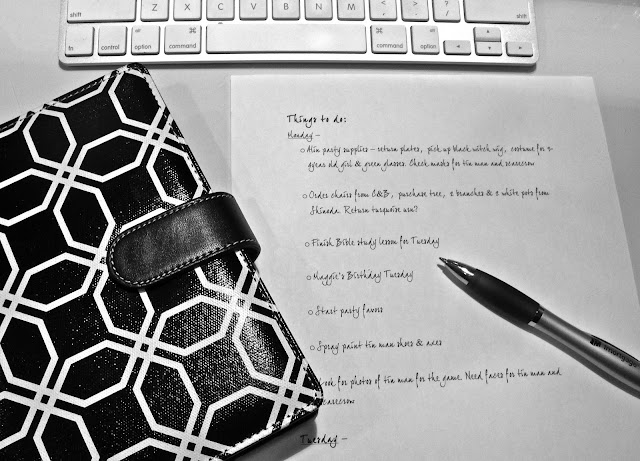 shift Z X C V B N M < , > . ? / shift
fn control alt option command command alt option
Things to do:
Monday –
party supplies – return plates, pick up black witch wig, costume for
old girl & green glasses. Check masks for tin man and scarecrow
Order chairs from C&B, purchase tree, 2 branches & 2 white pots from
Shinoda. Return turquoise urn?
Finish Bible study lesson for Tuesday
Maggie's Birthday Tuesday
Start party favors
Spray paint tin man shoes & axes
for photos of tin man for the game. Need faces for tin man and
scarecrow
Tuesday –